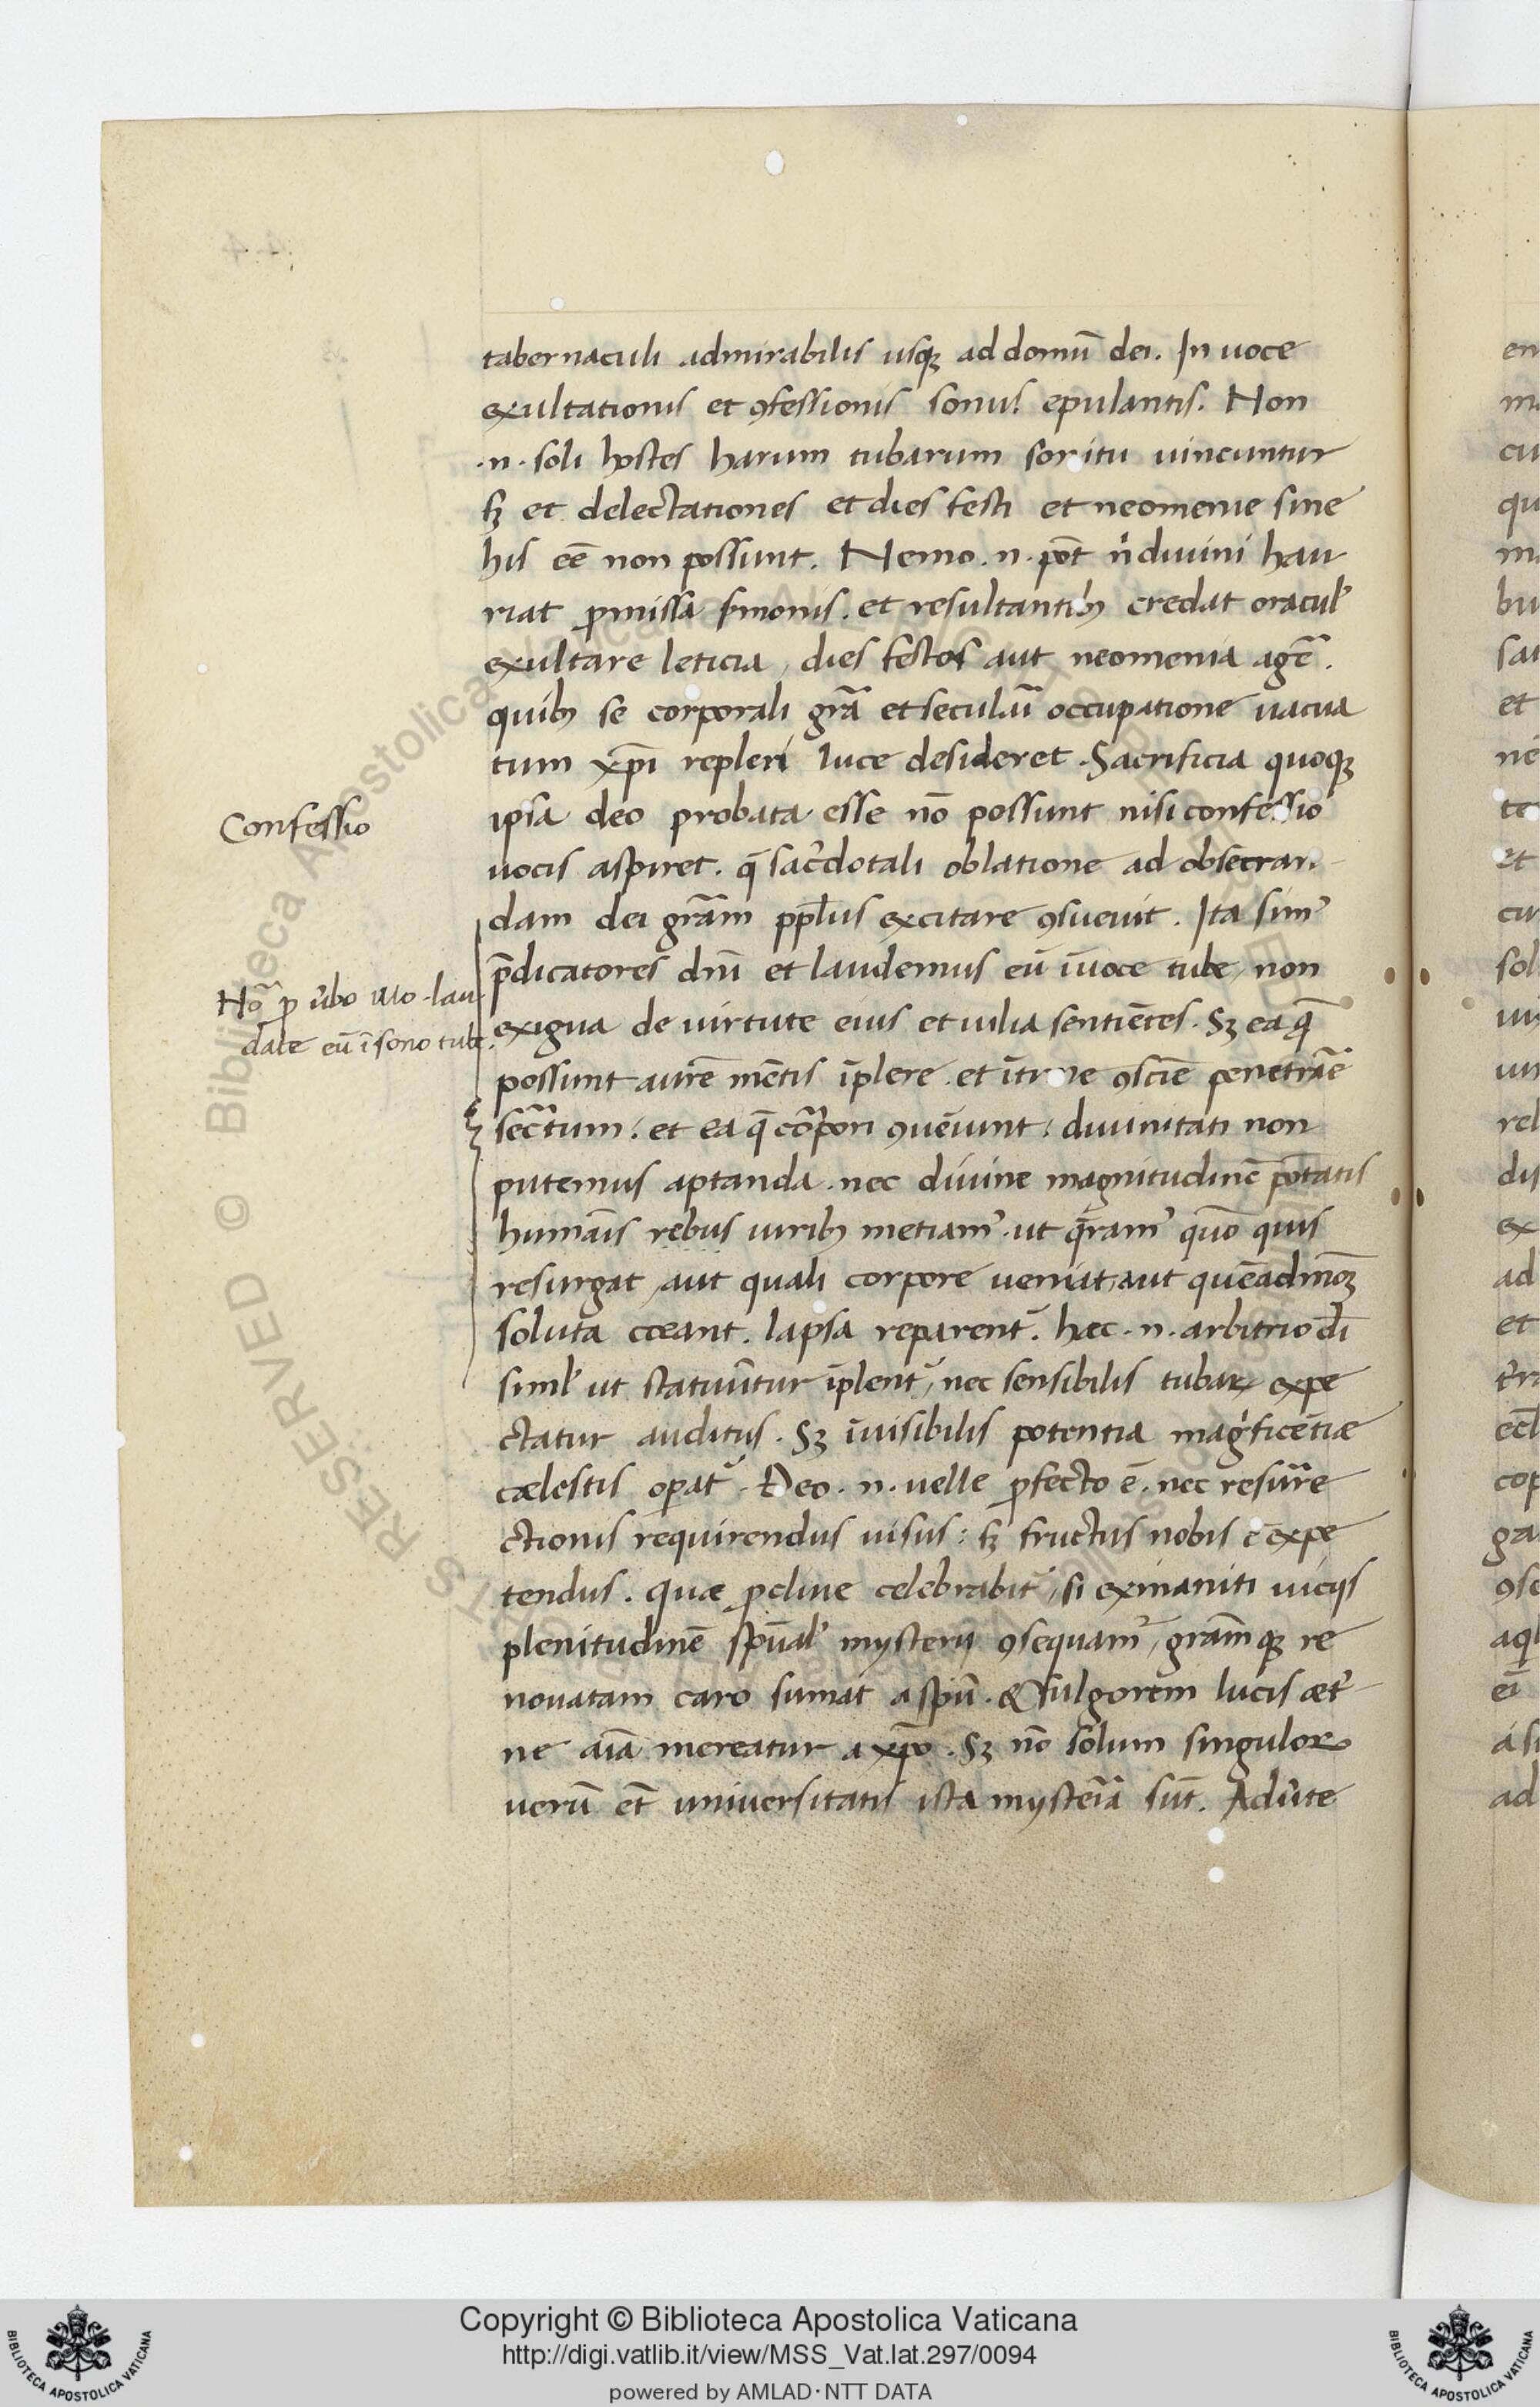 tabernaculi admirabilis usqꝫ ad domū dei. In uoce
exultationis et ꝯfessionis sonus epulantis. Non
.n. soli hostes harum tubarum sonitu uincuntur
sꝫ et delectationes et dies festi et neomenie sine
his eē non possunt. Nemo .n. pōt n̄ diuini hau
riat ꝓmissa ẜmonis. et resultantibꝫ credat oracul'
exultare leticia, dies festos aut neomenia agē.
quibꝫ se corporali grā et secularī occupatione uacua
tum xp̄i repleri luce desideret. Sacrificia quoqꝫ
ipsa deo probata esse nō possunt nisi confessio
uocis aspiret. q̄ sac'dotali oblatione ad obsecran
dam dei grām pp̄lus excitare ꝯsueuit. Ita sim'
p̄dicatores dn̄i et laudemus eū ī uoce tube, non
exigua de uirtute eius et uilia sentiētes. Sꝫ ea q̄
possunt aurē mētis īplere. et ītime ꝯsciē penetrāe
secrtum. et ea q̄ corpori ꝯueīunt: diuinitati non
putemus aptanda. nec diuine magnitudinē pōtatis
humāis rebus uiribꝫ metiam'. ut q̄ram' quō quis
resurgat, aut quali corpore ueniat, aut quēadmoꝫ
soluta coeant. lapsa reparent'. hæc .n. arbitrio dī
siml' ut statuūtur īplent', nec sensibilis tubaꝝ expe
ctatur auditus. Sꝫ īuisibilis potentia magnificētiæ
cælestis opat'. Deo .n. uelle ꝓfecto ē. nec resurre
ctionis requirendus uisus: sꝫ fructus nobis ē expe
tendus. quæ ꝓcliue celebrabit', si exinaniti uicijs
plenitudinē spūal' mysterij ꝯsequam', grāmqꝫ re
nouatam caro sumat a spū. & fulgorem lucis æt'
ne aīa mereatur a xp̄o. Sꝫ nō solum singuloꝝ
uerū et̄ uniuersitatis ista mysteria sūt. Adu'te
Confessio
No' ꝓ u'bo illo. lau
date eū ī sono tube.
Copyright © Biblioteca Apostolica Vaticana
http://digi.vatlib.it/view/MSS_Vat.lat.297/0094
powered by AMLAD·NTT DATA
BIBLIOTECA APOSTOLICA VATICANA
BIBLIOTECA APOSTOLICA VATICANA